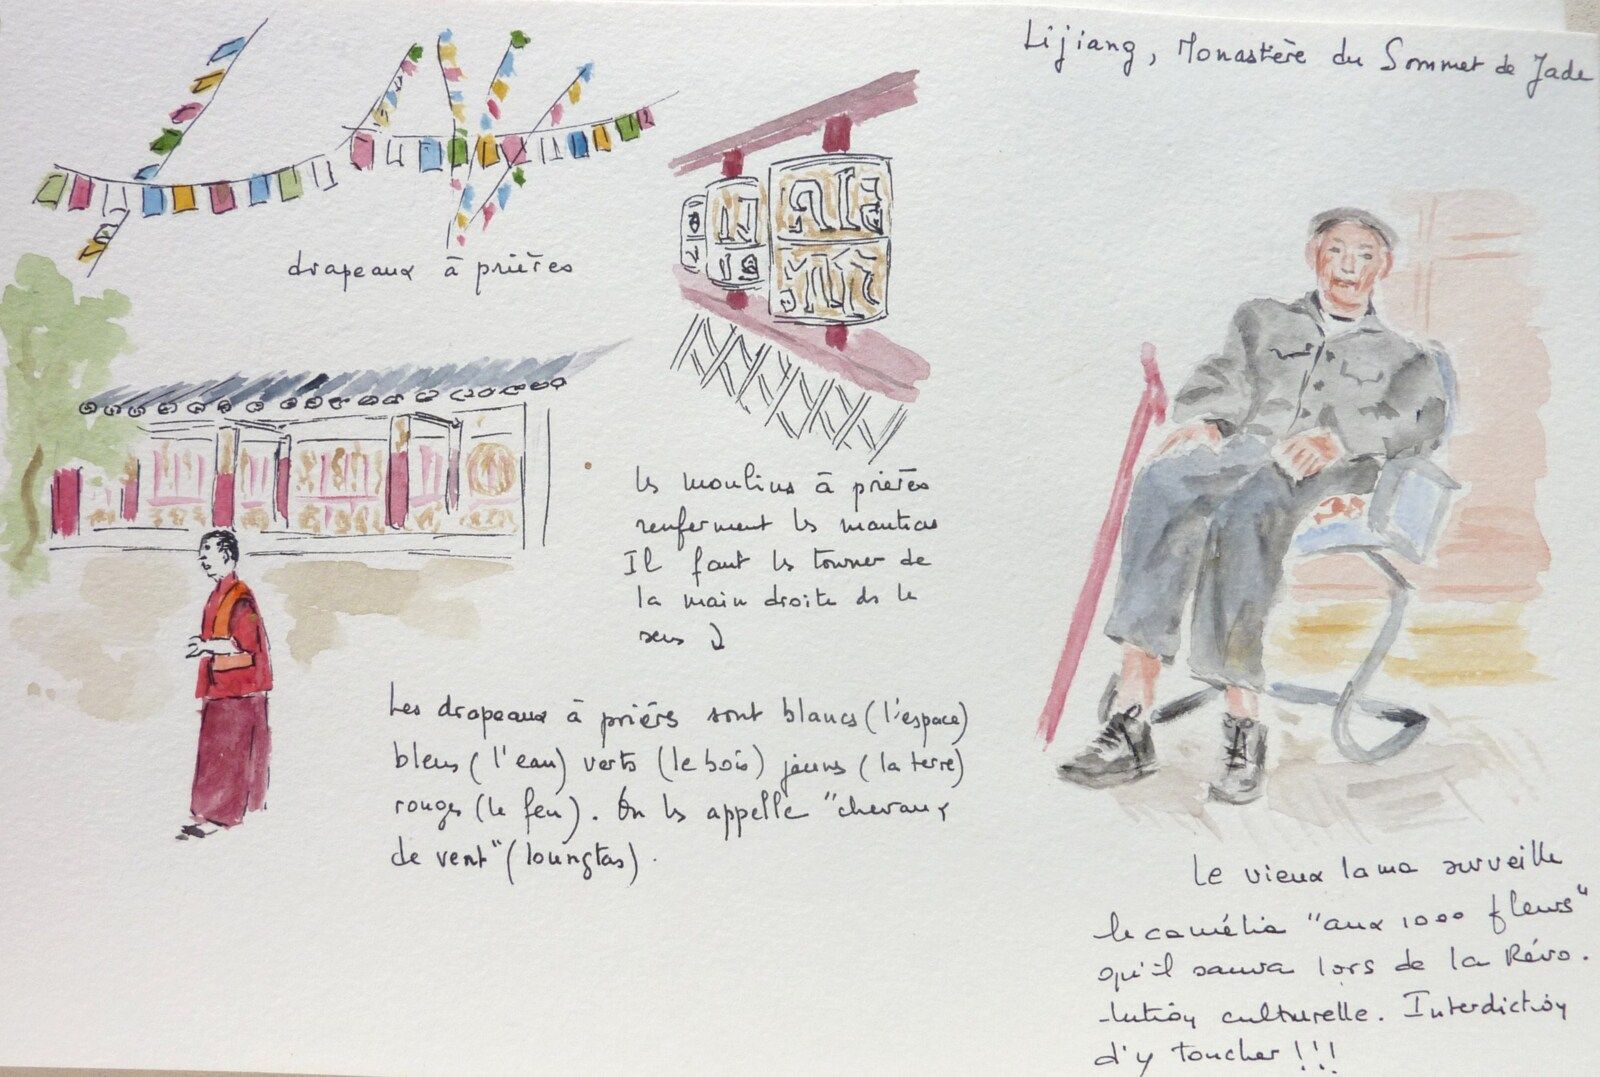 Lijiang, Monastère du Sommet de Jade
drapeaux à prières
les moulins à prières
renferment les mantras
Il faut les tourner de
la main droite ds le
sens
Les drapeaux à prières sont blancs (l'espace)
bleus (l'eau) verts (le bois) jaunes (la terre)
rouges (le feu). On les appelle "chevaux
de vent" (loungtas).
Le vieux lama surveille
le camélia "aux 1000 fleurs"
qu'il sauva lors de la Révo.
-lution culturelle. Interdiction
d'y toucher!!!